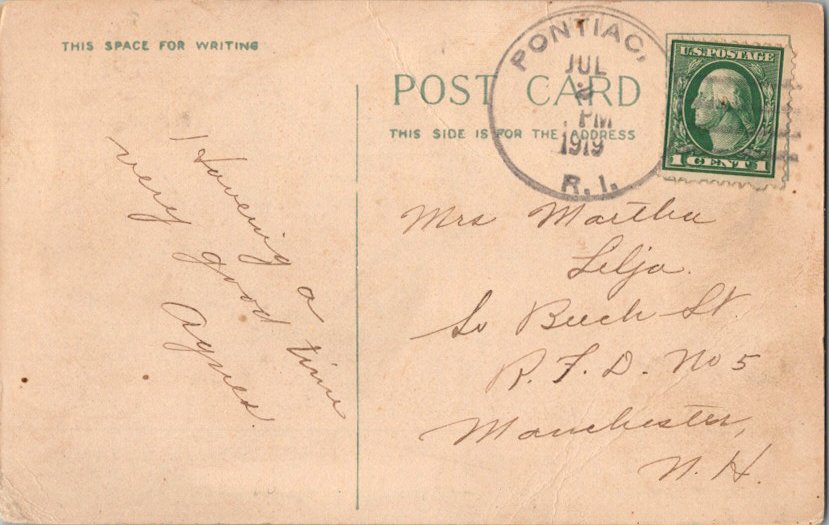 THIS SPACE FOR WRITING
Haveing a
very good time
Agnes.
POST CARD
THIS SIDE IS FOR THE ADDRESS
PONTIAC,
JUL
2
PM
1919
R.I.
U.S. POSTAGE
1 CENT 1
Mrs Martha
Lilja.
So Beech St.
R.F.D. No 5
Manchester,
N.H.